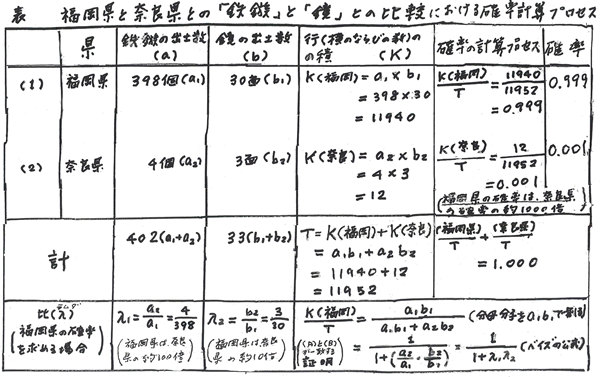 表 福岡県と奈良県との「鉄鏃」と「鏡」との比較における確率計算プロセス
県
鉄鏃の出土数
(a)
鏡の出土数
(b)
行(横のならびの数)の
の積
(K)
確率の計算プロセス
確率
(1)
福岡県
398個(a₁)
30面(b₁)
K(福岡)=a₁×b₁
=398×30
=11940
K(福岡)/T=11940/11952
=0.999
0.999
(2)
奈良県
4個(a₂)
3面(b₂)
K(奈良)=a₂×b₂
=4×3
=12
K(奈良)/T=12/11952
=0.001
(福岡県の確率は、奈良県
の確率の約1000倍
0.001
計
402(a₁+a₂)
33(b₁+b₂)
T=K(福岡)+K(奈良)
=a₁b₁+a₂b₂
=11940+12
=11952
(福岡県)/T+(奈良県)/T
=1.000
比(λ)
ラムダ
(福岡県の確率
を求める場合)
λ₁=a₂/a₁=4/398
(福岡県は奈良
県の約100倍)
λ₂=b₂/b₁=3/30
(福岡県は奈良
県の約10倍)
K(福岡)/T=a₁b₁/(a₁b₁+a₂b₂)
(分母分子をa₁b₁で割る)
証明
=1/(1+(a₂/a₁・b₂/b₁))=1/(1+λ₁λ₂)
(ベイズの公式)